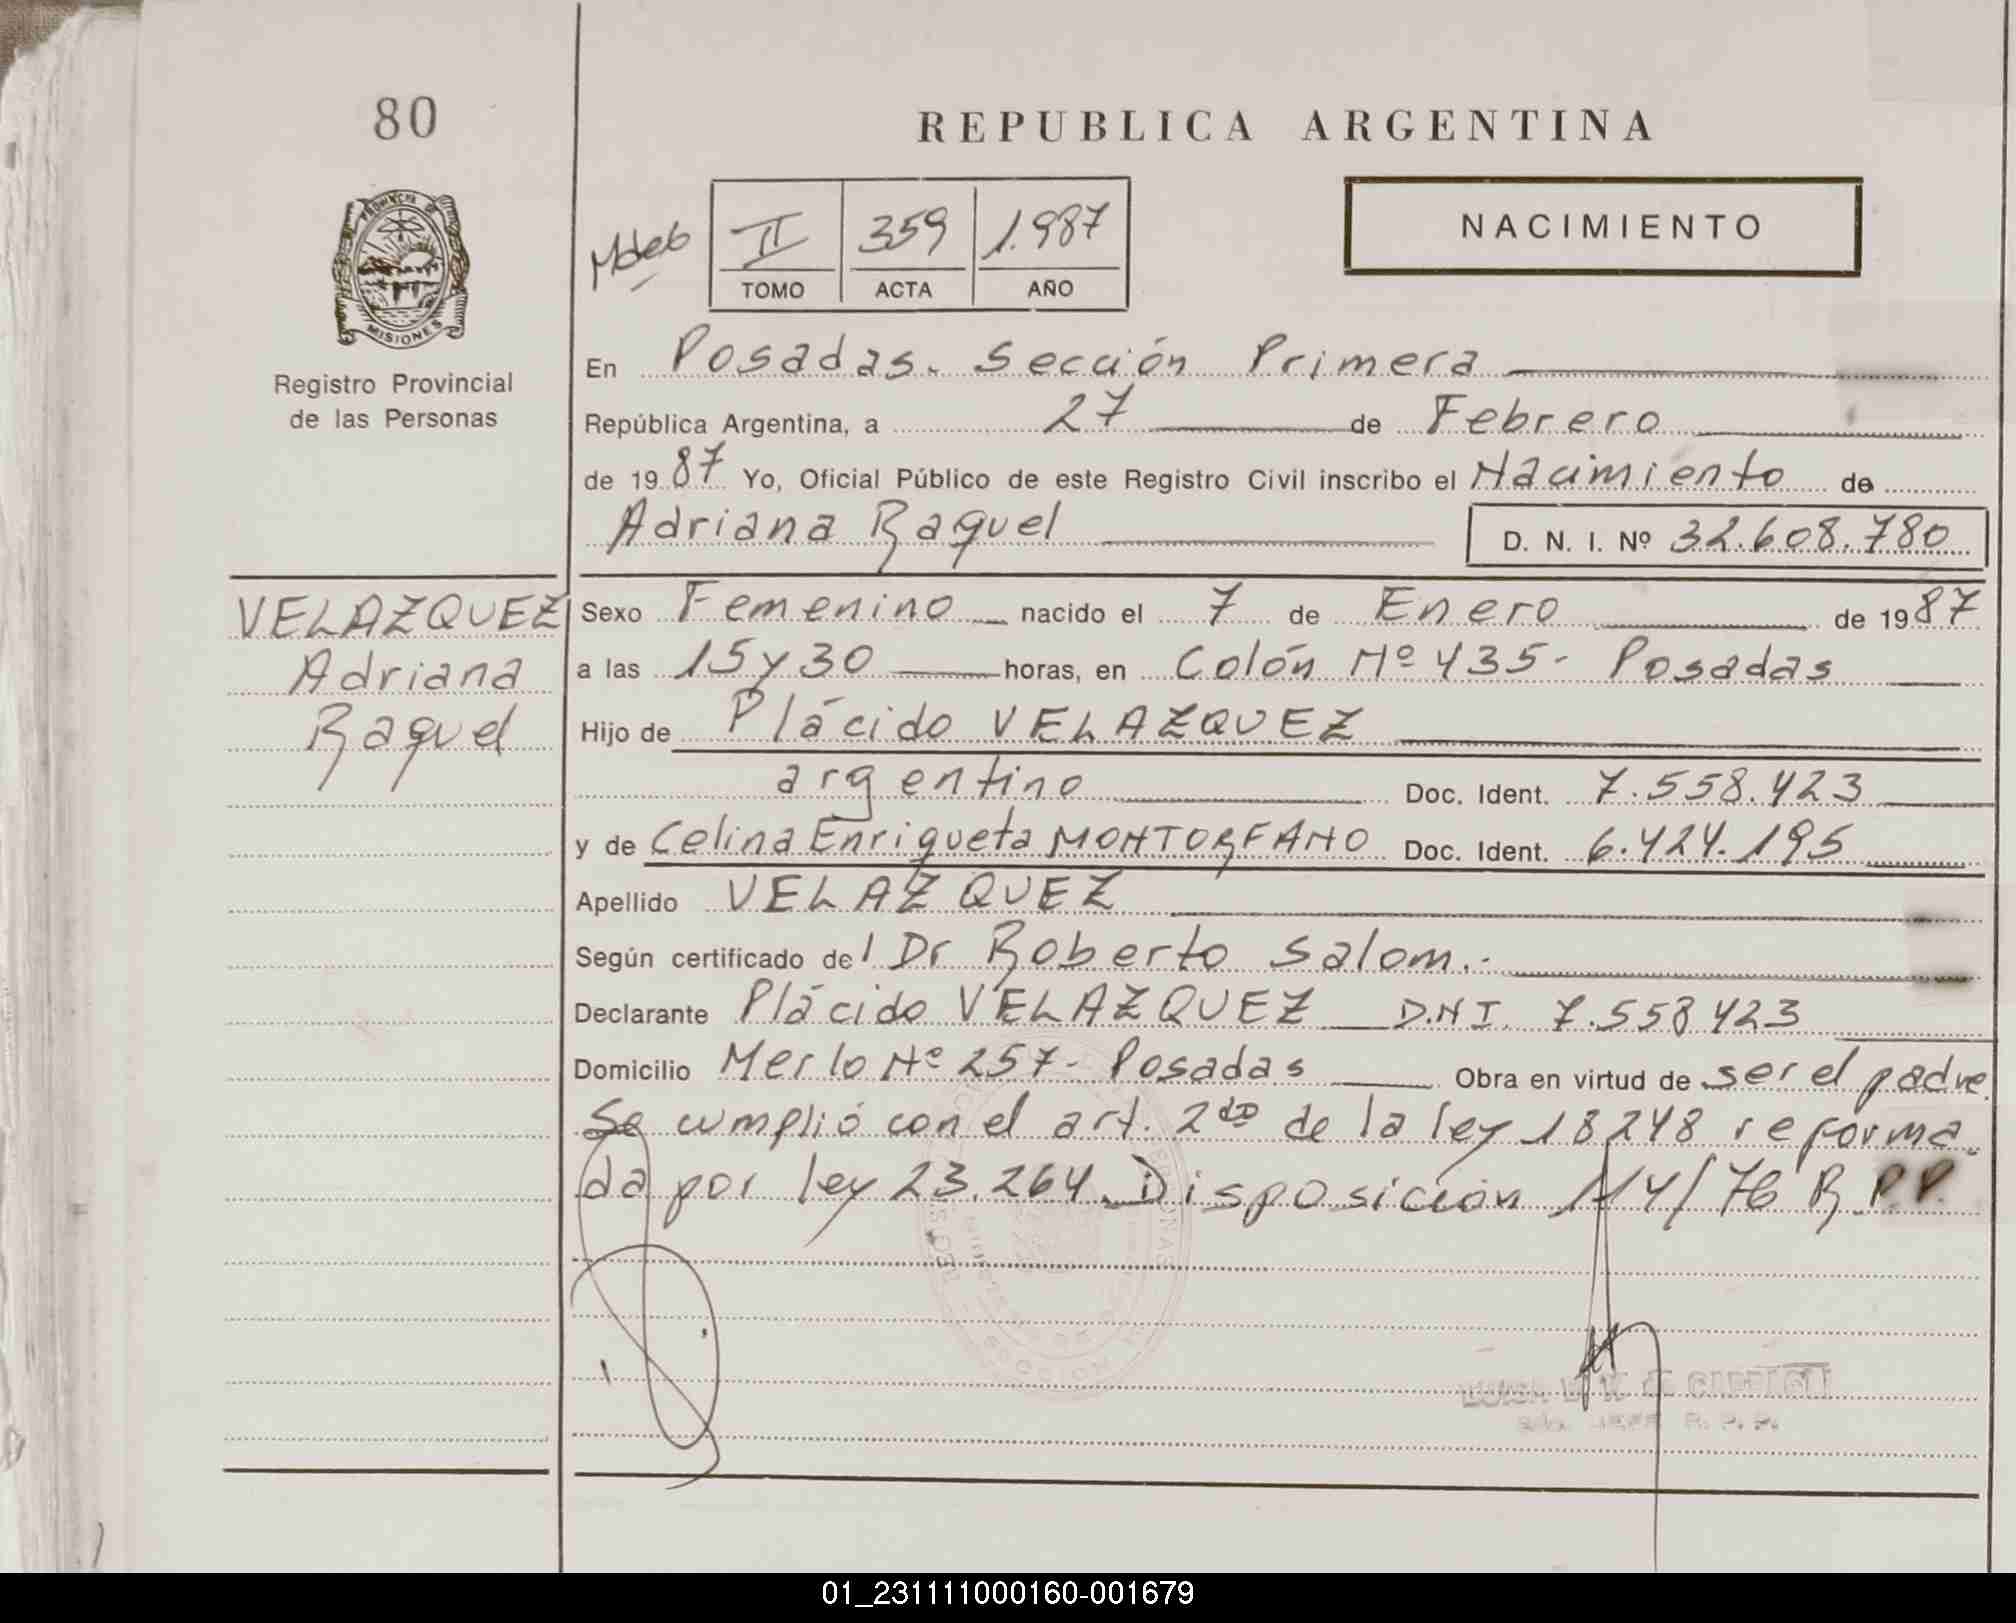 80
REPUBLICA ARGENTINA
II 359 1.987
TOMO ACTA AÑO
NACIMIENTO
PROVINCIA DE
MISIONES
Registro Provincial
de las Personas
En Posadas. Sección Primera
República Argentina, a 27 de Febrero
de 1987 Yo, Oficial Público de este Registro Civil inscribo el Nacimiento de
Adriana Raquel D. N. I. Nº 32.608.780
VELAZQUEZ
Adriana
Raquel
Sexo Femenino nacido el 7 de Enero de 1987
a las 15 y 30 horas, en Colón Nº 435- Posadas
Hijo de Plácido VELAZQUEZ
argentino Doc. Ident. 7.558.423
y de Celina Enriqueta MONTORFANO Doc. Ident. 6.424.195
Apellido VELAZQUEZ
Según certificado del Dr Roberto Salom.-
Declarante Plácido VELAZQUEZ D.N.I. 7.558423
Domicilio Merlo Nº 257- Posadas Obra en virtud de ser el padre.
Se cumplió con el art. 2do de la ley 18248 reforma
da por ley 23.264. Disposición 114/76 R.P.P.
JEFE R. P. P.
01_231111000160-001679